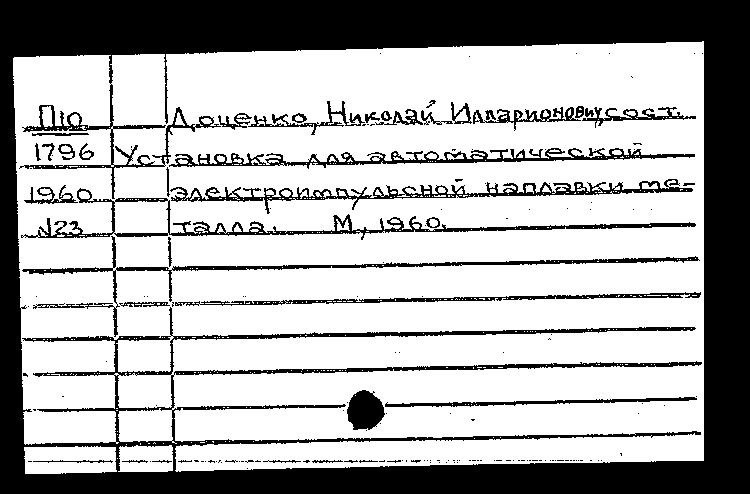 П10 Доценко, Николай Илларионович, сост.
1796 Установка для автоматической
1960 электроимпульсной наплавки ме-
№23 талла. М, 1960.